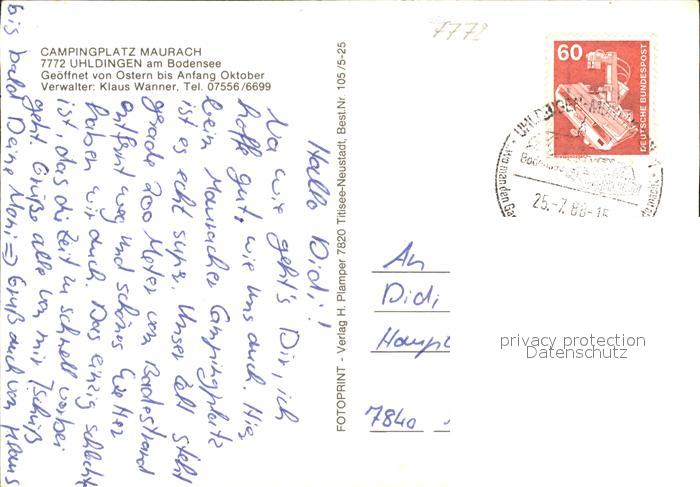 7772
CAMPINGPLATZ MAURACH
7772 UHLDINGEN am Bodensee
Geöffnet von Ostern bis Anfang Oktober
Verwalter: Klaus Wanner, Tel. 07556/6699
Hallo Didi!
Na wie geht's Dir, ich
hoffe gut, wie uns auch. Hier
beim Mauracher Campingplatz
ist es echt super. Unser Zelt steht
gerade 200 Meter vom Badestrand
entfernt weg und schönes Wetter
haben wir auch. Das einzig schlechte
ist, das die Zeit zu schnell vorbei
geht. Grüße alle von mir Tschüß
bis bald Deine Moni => Gruß auch von Klaus
FOTOPRINT - Verlag H. Plamper 7820 Titisee-Neustadt, Best.Nr. 105/5-25
60
DEUTSCHE BUNDESPOST
UHLDINGEN-MÜHL
wo man den
25.-7.88-15
An
Didi
Haupt
7840
privacy protection
Datenschutz